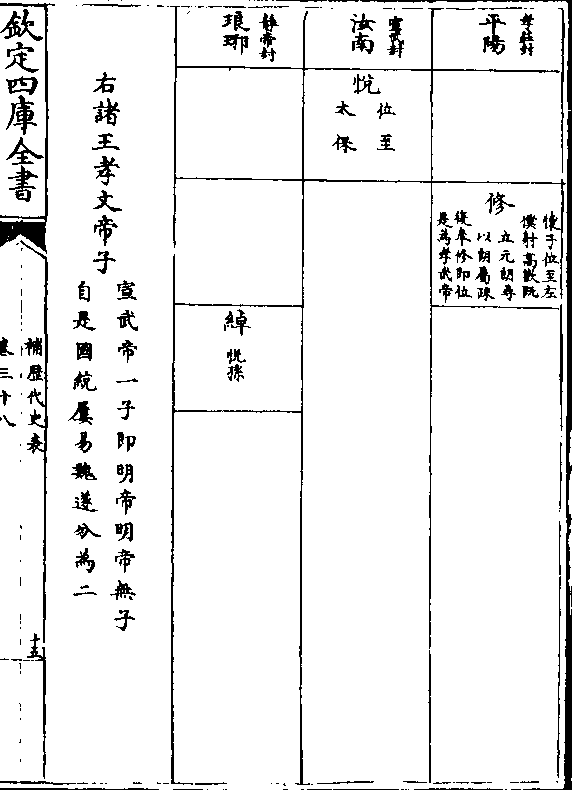 平陽
孝莊封
修
懷子位至左
僕射高歡既
立元朗尋
以朗屬疎
復奉修即位
是為孝武帝
汝南
宣武封
悅
位至
太保
琅琊
靜帝封
綽
悅孫
右諸王孝文帝子
宣武帝一子即明帝明帝無子
自是國統屢易魏遂分為二
欽定四庫全書
補歷代史表
卷三十八
十五